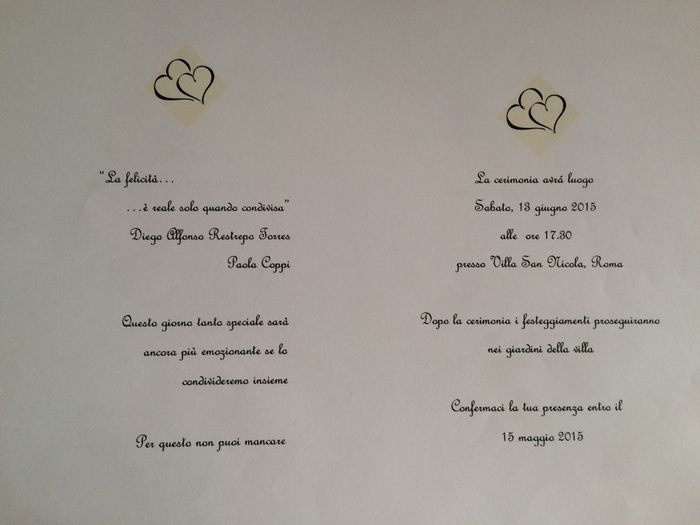 “La felicità...
...è reale solo quando condivisa”
Diego Alfonso Restrepo Torres
Paola Coppi
Questo giorno tanto speciale sarà
ancora più emozionante se lo
condivideremo insieme
Per questo non puoi mancare
La cerimonia avrá luogo
Sabato, 13 giugno 2015
alle ore 17.30
presso Villa San Nicola, Roma
Dopo la cerimonia i festeggiamenti proseguiranno
nei giardini della villa
Confermaci la tua presenza entro il
15 maggio 2015